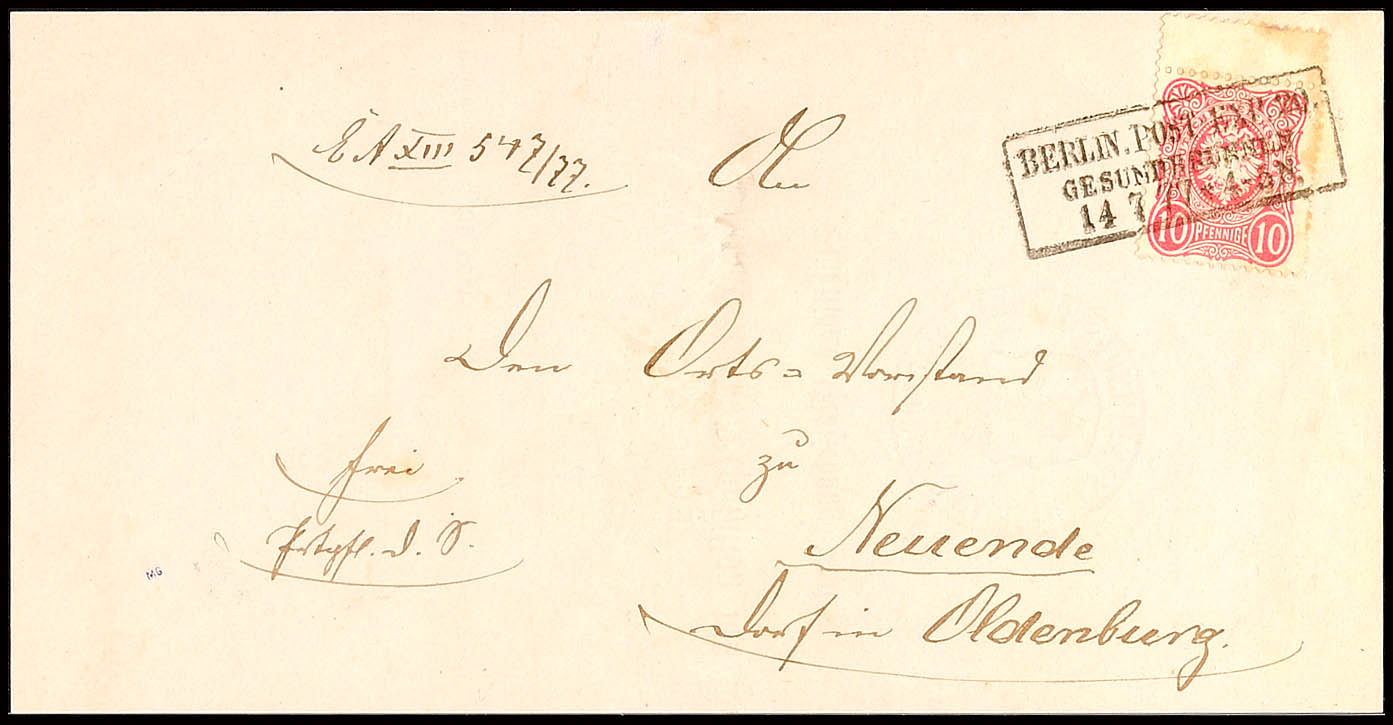 E A XIII 547/77.
An
BERLIN. POST EXP. 20.
GESUNDBRUNNEN
14 7 77 * 4-5N.
10 PFENNIGE 10
Den Orts=Vorstand
zu
frei
Neuende
d. S.
MG
Dorf in Oldenburg.